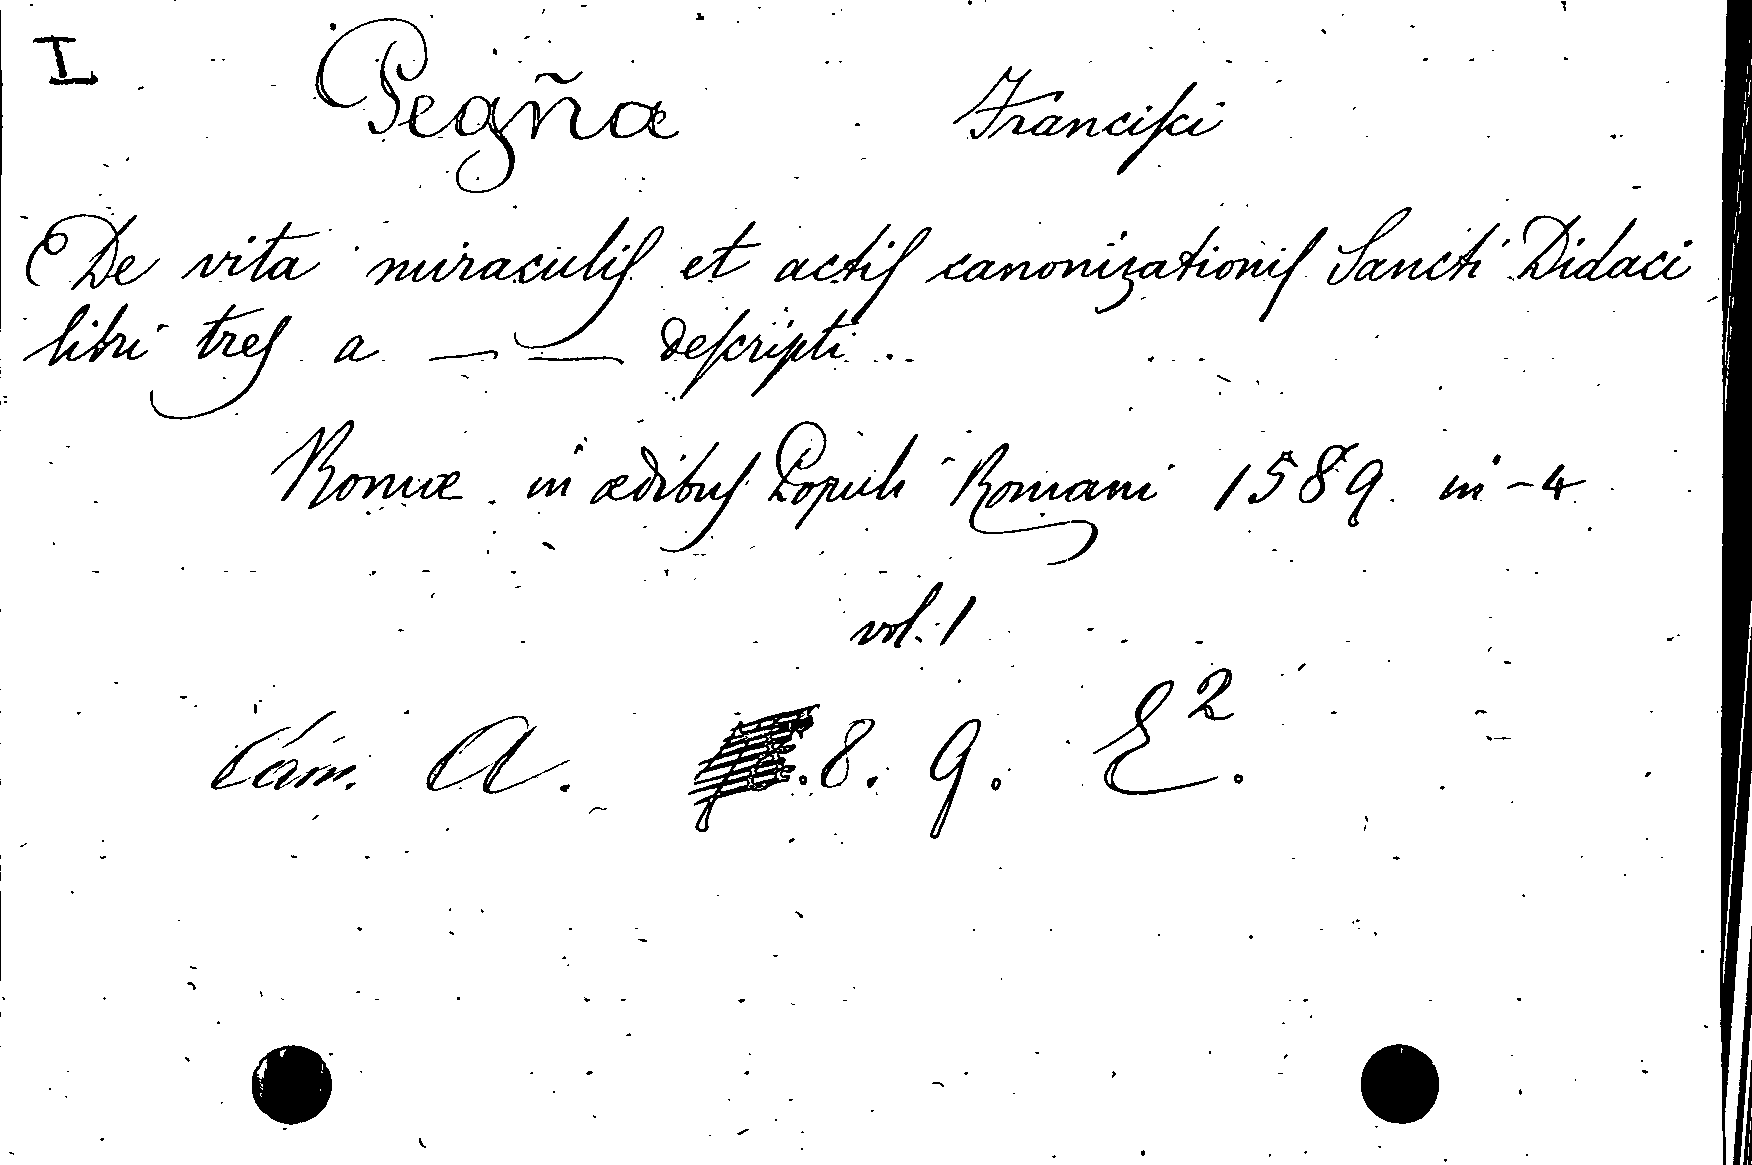 I Pegñæ Franciſci
De vita miraculiſ et actiſ canonizationiſ Sancti Didaci
libri treſ a — — deſcripti ..
Romæ in ædibuſ Populi Romani 1589 in-4
vol. 1
Cam. A. .8. 9. E².